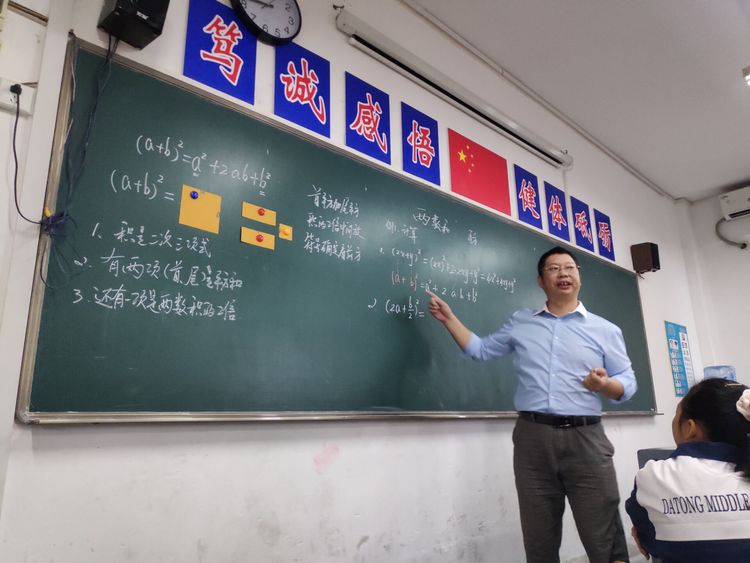 笃诚感悟
健体砥砺
(a+b)²=a²+2ab+b²
(a+b)²=
1. 积是二次三项式
2. 有两项(首尾)是平方和
3. 还有一项是两数积的2倍
首平方加尾平方
积的2倍中间放
符号确定看前方
两数和
例 计算
1. (2x+y)²=(2x)²+2·2x·y+y²=4x²+4xy+y²
(a+b)²=a²+2·a·b+b²
2) (2a+b/2)²=
DATONG MIDDLE